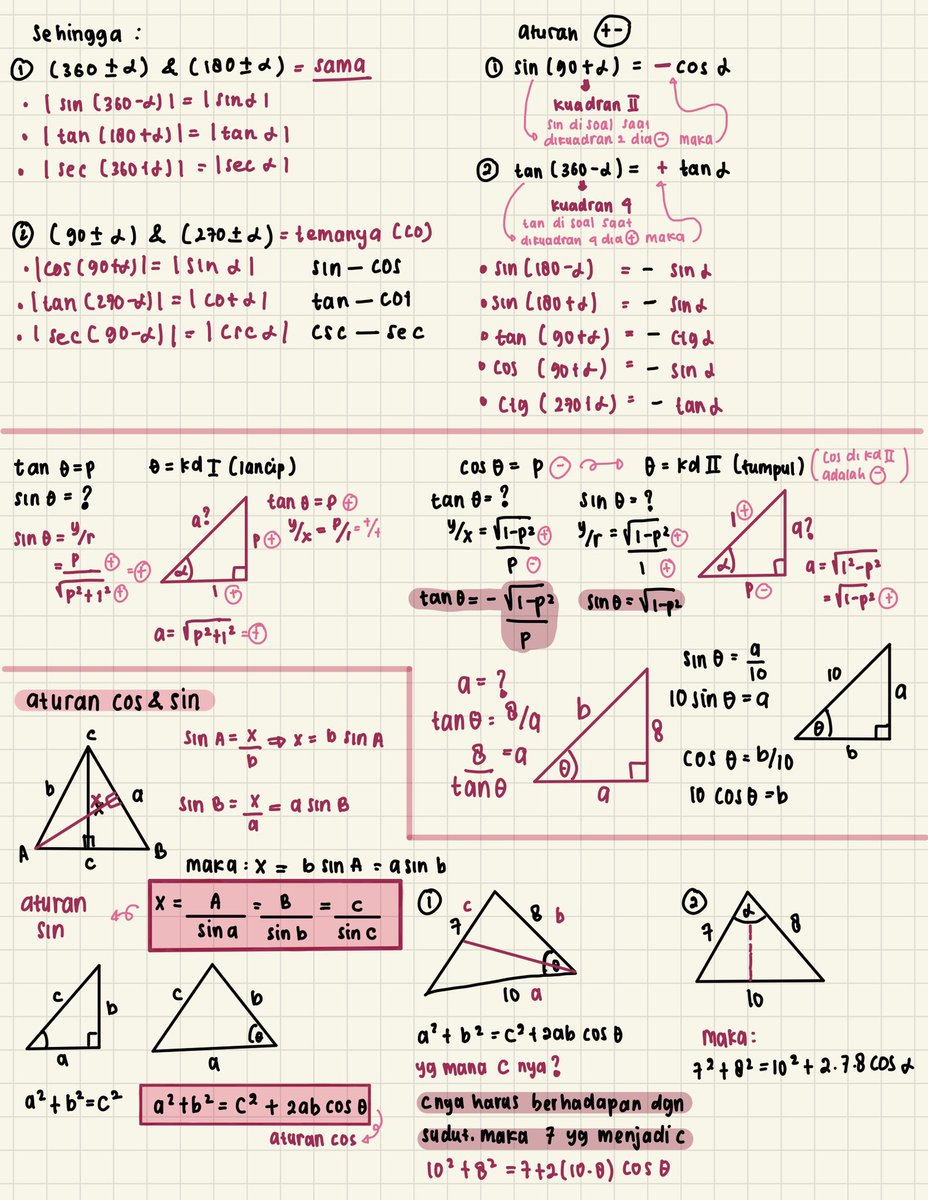 Sehingga :
① (360 ± α) & (180 ± α) = sama
• | sin (360-α) | = | sin α |
• | tan (180+α) | = | tan α |
• | sec (360+α) | = | sec α |
② (90 ± α) & (270 ± α) = temanya (co)
• | cos (90+α) | = | sin α | sin — cos
• | tan (270-α) | = | cot α | tan — cot
• | sec (90-α) | = | csc α | csc — sec
aturan +-
① sin (90+α) = - cos α
kuadran II
sin di soal saat
dikuadran 2 dia ⊖ maka
② tan (360-α) = + tan α
kuadran 4
tan di soal saat
dikuadran 4 dia ⊕ maka
• sin (180-α) = - sin α
• sin (180+α) = - sin α
• tan (90+α) = - ctg α
• cos (90+α) = - sin α
• ctg (270+α) = - tan α
tan θ = p θ = kd I (lancip)
sin θ = ?
sin θ = y/r
= p/√p²+1² ⊕ ⊕ = ⊕
a?
p ⊕
1 ⊕
α
tan θ = p ⊕
y/x = p/1 = +/+
a = √p²+1² = ⊕
cos θ = p ⊖ → θ = kd II (tumpul) (cos di kd II
adalah ⊖)
tan θ = ?
y/x = √1-p² ⊕ / p ⊖
tan θ = - √1-p² / p
sin θ = ?
y/r = √1-p² ⊕ / 1 ⊕
sin θ = √1-p²
1 ⊕
a?
α
p ⊖
a = √1²-p²
= √1-p² ⊕
aturan cos & sin
C
b
x
x
a
A
c
B
sin A = x/b ⇒ x = b sin A
sin B = x/a = a sin B
maka : x = b sin A = a sin b
aturan
sin
x = A/sin a = B/sin b = c/sin c
a = ?
tan θ = 8/a
8/tan θ = a
b
8
θ
a
sin θ = a/10
10 sin θ = a
cos θ = b/10
10 cos θ = b
10
a
θ
b
c
b
a
a² + b² = c²
c
b
θ
a
a² + b² = c² + 2ab cos θ
aturan cos
①
c
7
8 b
θ
10 a
a² + b² = c² + 2ab cos θ
yg mana c nya?
cnya harus berhadapan dgn
sudut. maka 7 yg menjadi c
10² + 8² = 7 + 2(10.8) cos θ
②
α
7
8
10
maka:
7² + 8² = 10² + 2.7.8 cos α